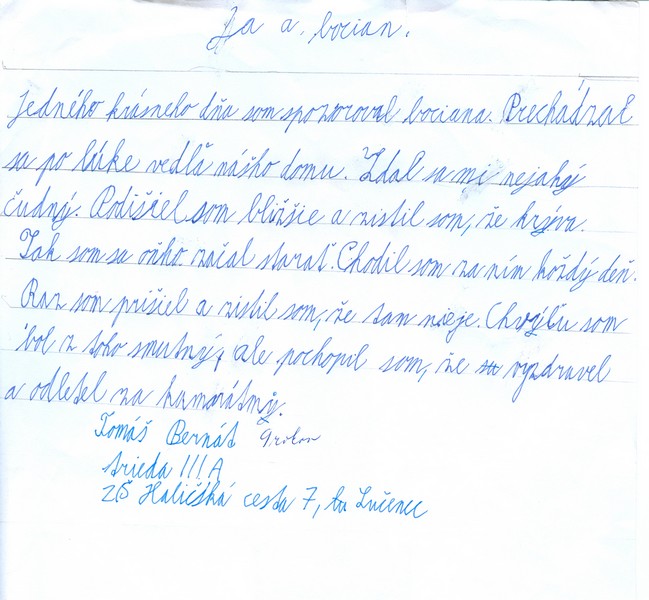 Ja a bocian.
Jedného krásneho dňa som spozoroval bociana. Prechádzal
sa po lúke vedľa nášho domu. Zdal sa mi nejaký
čudný. Podišiel som bližšie a zistil som, že krýva.
Tak som sa oňho začal starať. Chodil som za ním každý deň.
Raz som prišiel a zistil som, že tam nieje. Chvýľu som
bol z toho smutný, ale pochopil som, že vyzdravel
a odletel za kamarátmy.
Tomáš Bernát 9 rokov
trieda III A
ZŠ Haličská cesta 7, Lučenec